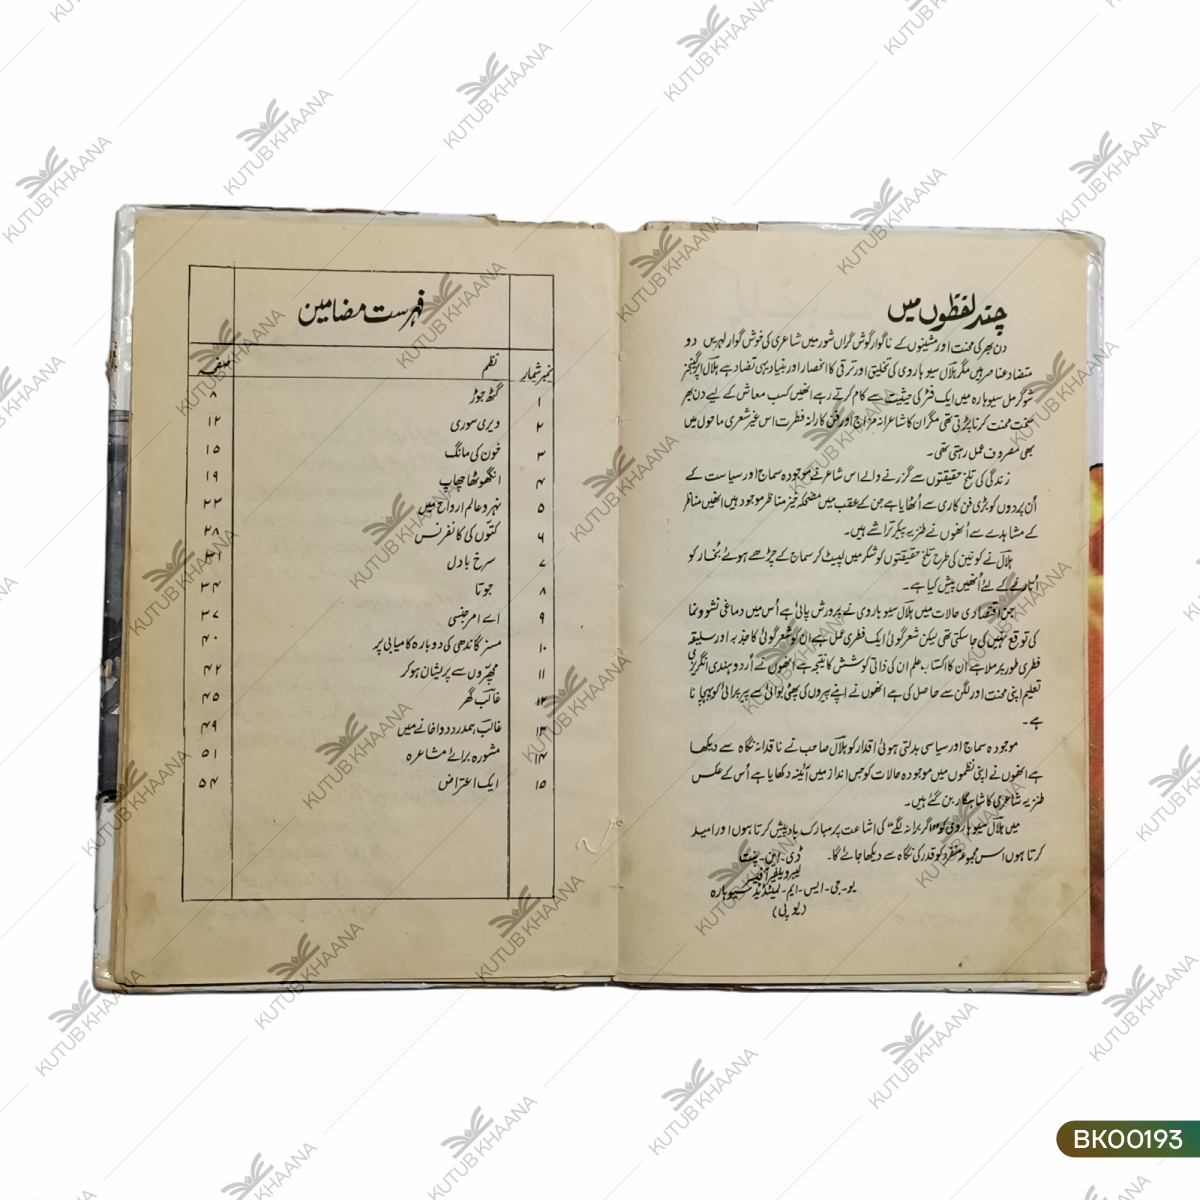 چند لفظوں میں
دن بھر کی محنت اور مشینوں کے ناگوار گوش گراں شور میں شاعری کی خوش گوار لہریں دو
متضاد عناصر ہیں مگر ہلال سیوہاروی کی تخلیق اور ترقی کا انحصار اور بنیاد یہی تضاد ہے ہلال اپر گینجز
شوگر مل سیوہارہ میں ایک فٹر کی حیثیت سے کام کرتے رہے انھیں کسب معاش کے لیے دن بھر
سخت محنت کرنا پڑتی تھی مگر ان کا شاعرانہ مزاج اور فن کارانہ فطرت اس غیر شعری ماحول میں
بھی مصروف عمل رہتی تھی۔
زندگی کی تلخ حقیقتوں سے گزرنے والے اس شاعر نے موجودہ سماج اور سیاست کے
اُن پردوں کو بڑی فن کاری سے اُٹھایا ہے جن کے عقب میں مضحکہ خیز مناظر موجود ہیں انھیں مناظر
کے مشاہدے سے اُنھوں نے طنزیہ پیکر تراشے ہیں۔
ہلال نے کونین کی طرح تلخ حقیقتوں کو شکر میں لپیٹ کر سماج کے چڑھے ہوئے بُخار کو
اُتارنے کے لئے اُنھیں پیش کیا ہے۔
جن اقتصادی حالات میں ہلال سیوہاروی نے پرورش پائی ہے اُس میں دماغی نشوونما
کی توقع نہیں کی جاسکتی تھی لیکن شعر گوئی ایک فطری عمل ہے ان کو شعر گوئی کا جذبہ اور سلیقہ
فطری طور پر ملا ہے ان کا اکتساب علم ان کی ذاتی کوشش کا نتیجہ ہے انھوں نے اُردو ہندی انگریزی
تعلیم اپنی محنت اور لگن سے حاصل کی ہے انھوں نے اپنے پیروں کی پھٹی بوائی سے پیر پرائی کو پہچانا
ہے۔
موجودہ سماج اور سیاسی بدلتی ہوئی اقدار کو ہلال صاحب نے ناقدانہ نگاہ سے دیکھا
ہے انھوں نے اپنی نظموں میں موجودہ حالات کو جس انداز میں آئینہ دکھایا ہے اُس کے عکس
طنزیہ شاعری کا شاہکار بن گئے ہیں۔
میں ہلال سیوہاروی کو "اگر برا نہ لگے" کی اشاعت پر مبارک باد پیش کرتا ہوں اور امید
کرتا ہوں اس مجموعہ منفرد کو قدر کی نگاہ سے دیکھا جائے گا۔
ڈی۔ این۔ پنت
لیبر ویلفیر آفیسر
یو۔جی۔ایس۔ایم۔لمیٹیڈ سیوہارہ
(یو پی)
فہرست مضامین
نمبر شمار نظم صفحہ
۱ گٹھ جوڑ ۸
۲ ویری سوری ۱۲
۳ خون کی مانگ ۱۵
۴ انگھوٹھا چھاپ ۱۹
۵ نہرو عالم ارواح میں ۲۳
۶ کتوں کی کانفرنس ۲۸
۷ سرخ بادل ۳۱
۸ جوتا ۳۴
۹ اے امرجنسی ۳۷
۱۰ مسز گاندھی کی دوبارہ کامیابی پر ۴۰
۱۱ مچھروں سے پریشان ہو کر ۴۲
۱۲ غالب گھر ۴۵
۱۳ غالب ہمدرد دواخانے میں ۴۹
۱۴ مشورہ برائے مشاعرہ ۵۱
۱۵ ایک اعتراض ۵۴
KUTUB KHAANA
BK00193